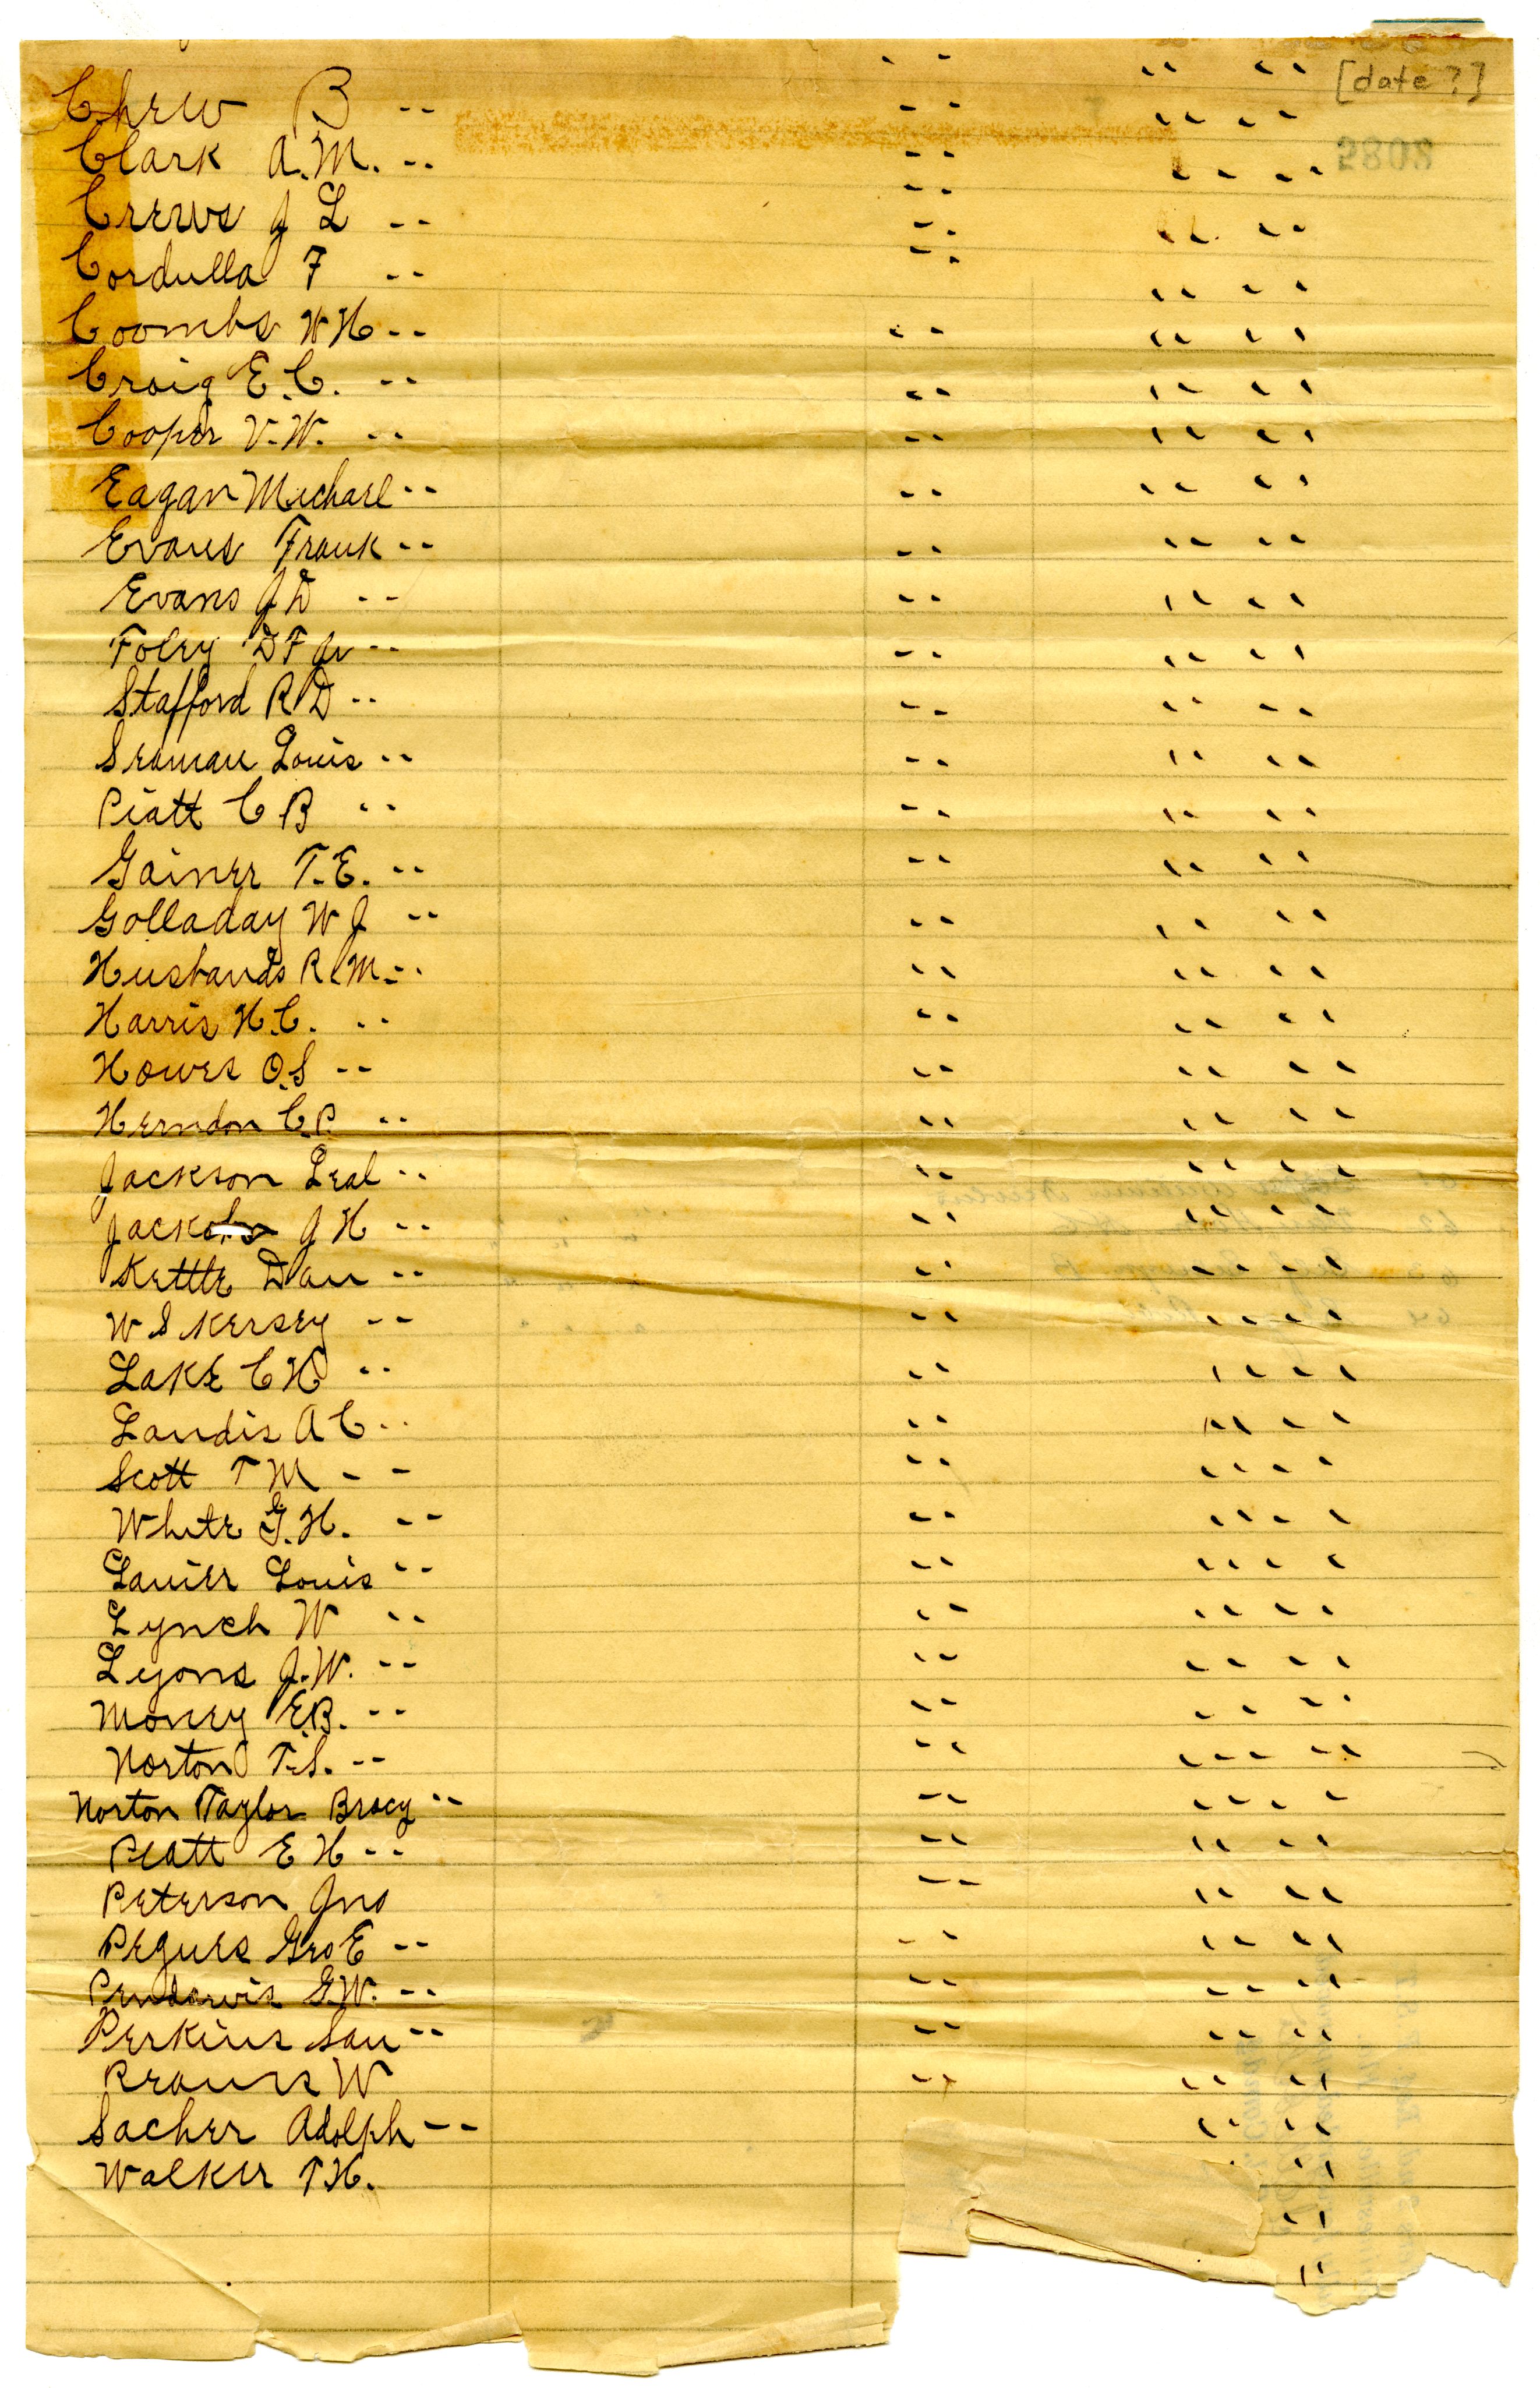 [date?]
Chew B " " " " "
2808
Clark A.M. " " " "
Crews J L " " " "
Cordulla F " " " "
Coombs W H " " " "
Craig E.C. " " " "
Cooper V.W. " " " "
Eagan Michael " " " "
Evans Frank " " " "
Evans J D " " " "
Foley D F Jr " " " "
Stafford R D " " " "
Seaman Louis " " " "
Piatt C B " " " "
Gainer T.E. " " " "
Golladay W J " " " "
Husbands R M " " " "
Harris H.C. " " " "
Howes O.S " " " "
Herndon C.P. " " " "
Jackson Leal " " " "
J H " " " "
Kettle Dan " " " "
W S Kersey " " " "
Lake C H " " " "
Landis A C " " " "
Scott T M " " " "
White G.H. " " " "
Lanier Louis " " " "
Lynch W " " " "
Lyons J.W. " " " "
Money E.B. " " " "
Norton T.S. " " " "
Norton Taylor Bracy " " " "
Piatt E H " " " "
Peterson Jno " " "
Pegues Geo E " " " "
Pendarvis G.W. " " " "
Perkins San " " " "
W " " "
Sacher Adolph " " "
Walker T H. "
"
"